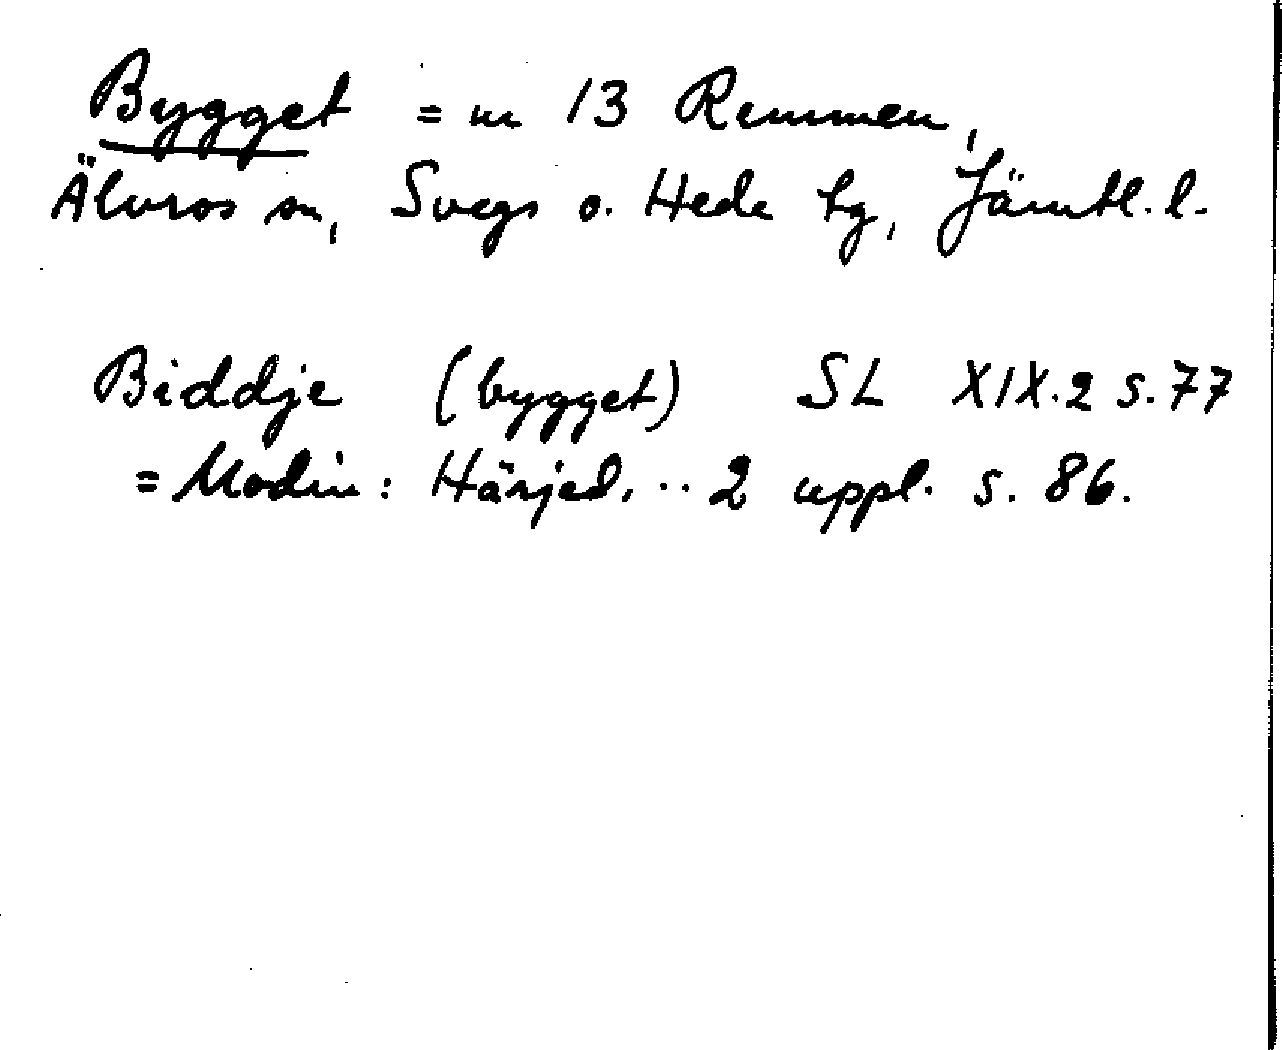 Bygget = nr 13 Remmen,
Älvros sn, Svegs o. Hede tg, Jämtl. l.
Biddje (bygget) SL XIX.2 s. 77
= Modin: Härjed. .. 2 uppl. s. 86.